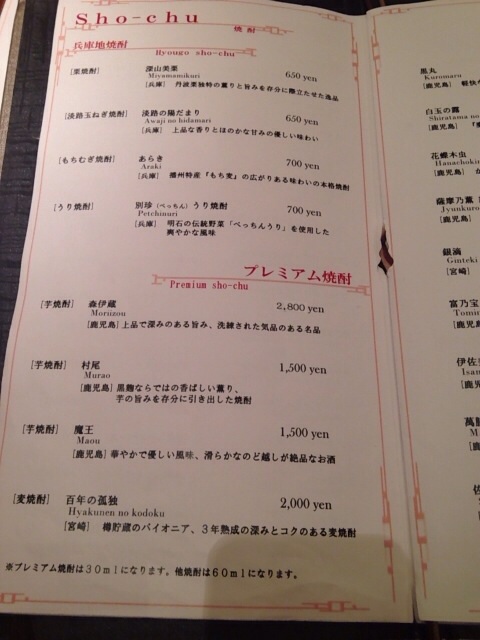 Sho-chu
焼酎
兵庫地焼酎
Hyougo sho-chu
[栗焼酎] 深山美栗 650 yen
Miyamamikuri
[兵庫] 丹波栗独特の薫りと旨みを存分に際立たせた逸品
[淡路玉ねぎ焼酎] 淡路の陽だまり 650 yen
Awaji no hidamari
[兵庫] 上品な香りとほのかな甘みの優しい味わい
[もちむぎ焼酎] あらき 700 yen
Araki
[兵庫] 播州特産『もち麦』の広がりある味わいの本格焼酎
[うり焼酎] 別珍（べっちん）うり焼酎 700 yen
Petchinuri
[兵庫] 明石の伝統野菜「べっちんうり」を使用した
爽やかな風味
プレミアム焼酎
Premium sho-chu
[芋焼酎] 森伊蔵 2,800 yen
Moriizou
[鹿児島] 上品で深みのある旨み、洗練された気品のある名品
[芋焼酎] 村尾 1,500 yen
Murao
[鹿児島] 黒麹ならではの香ばしい薫り、
芋の旨みを存分に引き出した焼酎
[芋焼酎] 魔王 1,500 yen
Maou
[鹿児島] 華やかで優しい風味、滑らかなのど越しが絶品なお酒
[麦焼酎] 百年の孤独 2,000 yen
Hyakunen no kodoku
[宮崎] 樽貯蔵のパイオニア、3年熟成の深みとコクのある麦焼酎
※プレミアム焼酎は30mlになります。他焼酎は60mlになります。
黒丸
Kuromaru
[鹿児島] 軽快
白玉の露
Shiratama no
[鹿児島]
花蝶木虫
Hanachokin
[鹿児島]
薩摩乃薫
Jyunkuro
[鹿児島]
銀滴
Ginteki
[宮崎]
富乃宝
Tomin
[鹿児島]
伊佐
Isan
[鹿児
萬
M
佐